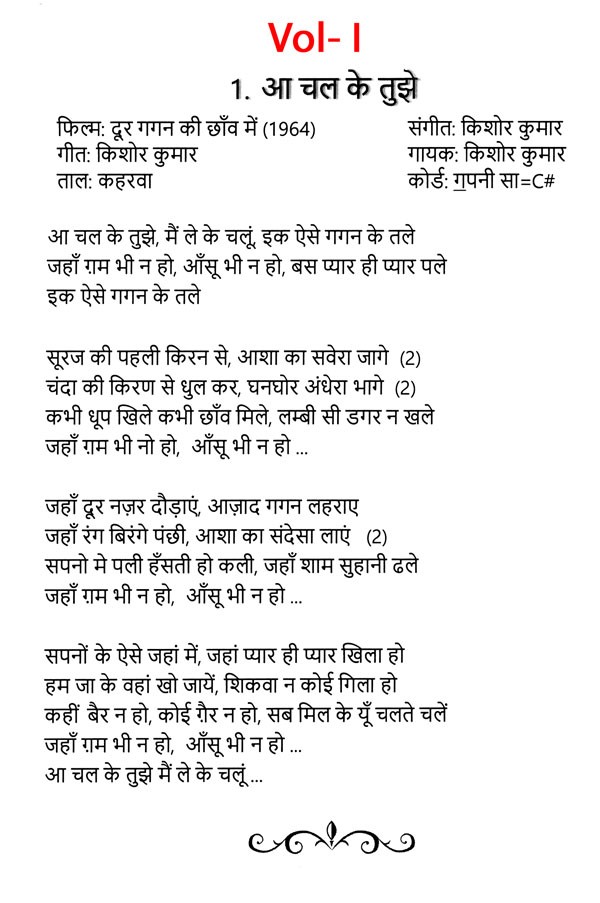 Vol- I
1. आ चल के तुझे
फिल्म: दूर गगन की छाँव में (1964) संगीत: किशोर कुमार
गीत: किशोर कुमार गायक: किशोर कुमार
ताल: कहरवा कोर्ड: गपनी सा=C#
आ चल के तुझे, मैं ले के चलूं, इक ऐसे गगन के तले
जहाँ ग़म भी न हो, आँसू भी न हो, बस प्यार ही प्यार पले
इक ऐसे गगन के तले
सूरज की पहली किरन से, आशा का सवेरा जागे (2)
चंदा की किरण से धुल कर, घनघोर अंधेरा भागे (2)
कभी धूप खिले कभी छाँव मिले, लम्बी सी डगर न खले
जहाँ ग़म भी नो हो, आँसू भी न हो ...
जहाँ दूर नज़र दौड़ाएं, आज़ाद गगन लहराए
जहाँ रंग बिरंगे पंछी, आशा का संदेसा लाएं (2)
सपनो मे पली हँसती हो कली, जहाँ शाम सुहानी ढले
जहाँ ग़म भी न हो, आँसू भी न हो ...
सपनों के ऐसे जहां में, जहां प्यार ही प्यार खिला हो
हम जा के वहां खो जायें, शिकवा न कोई गिला हो
कहीं बैर न हो, कोई ग़ैर न हो, सब मिल के यूँ चलते चलें
जहाँ ग़म भी न हो, आँसू भी न हो ...
आ चल के तुझे मैं ले के चलूं ...